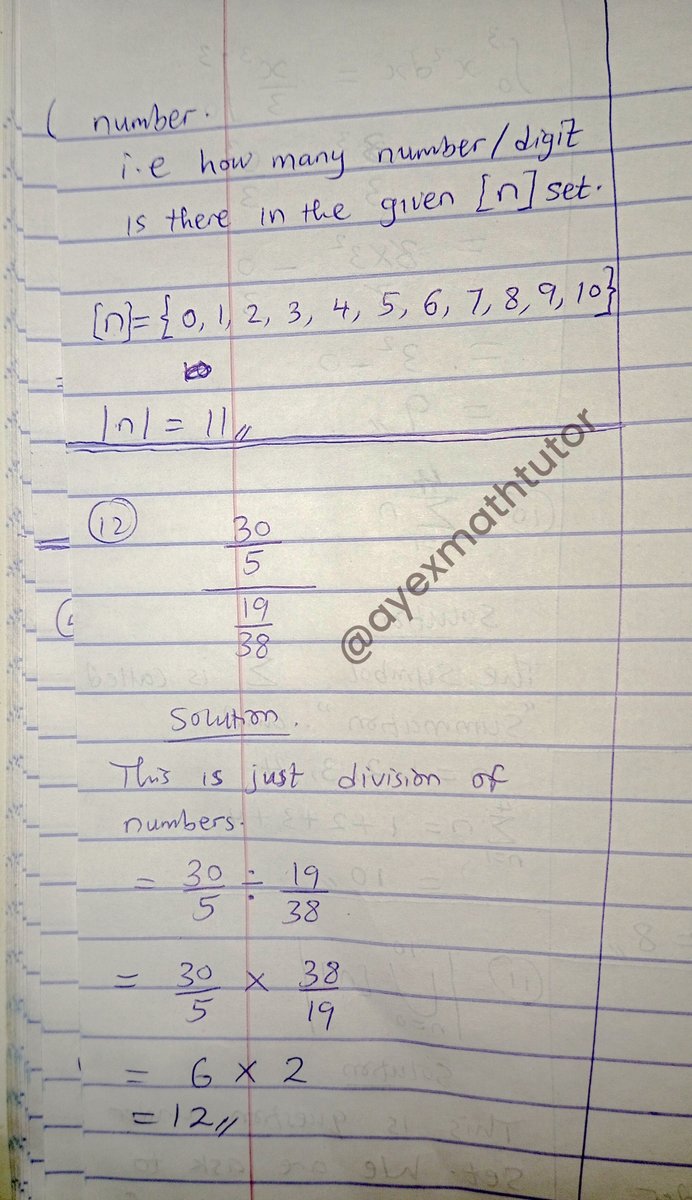 ( number.
i.e how many number/digit
is there in the given [n] set.
[n]= {0, 1, 2, 3, 4, 5, 6, 7, 8, 9, 10}
|n| = 11,,
(12)
30
5
19
38
@ayexmathtutor
Solution.
This is just division of
numbers.
= 30/5 ÷ 19/38
= 30/5 × 38/19
= 6 × 2
= 12,,